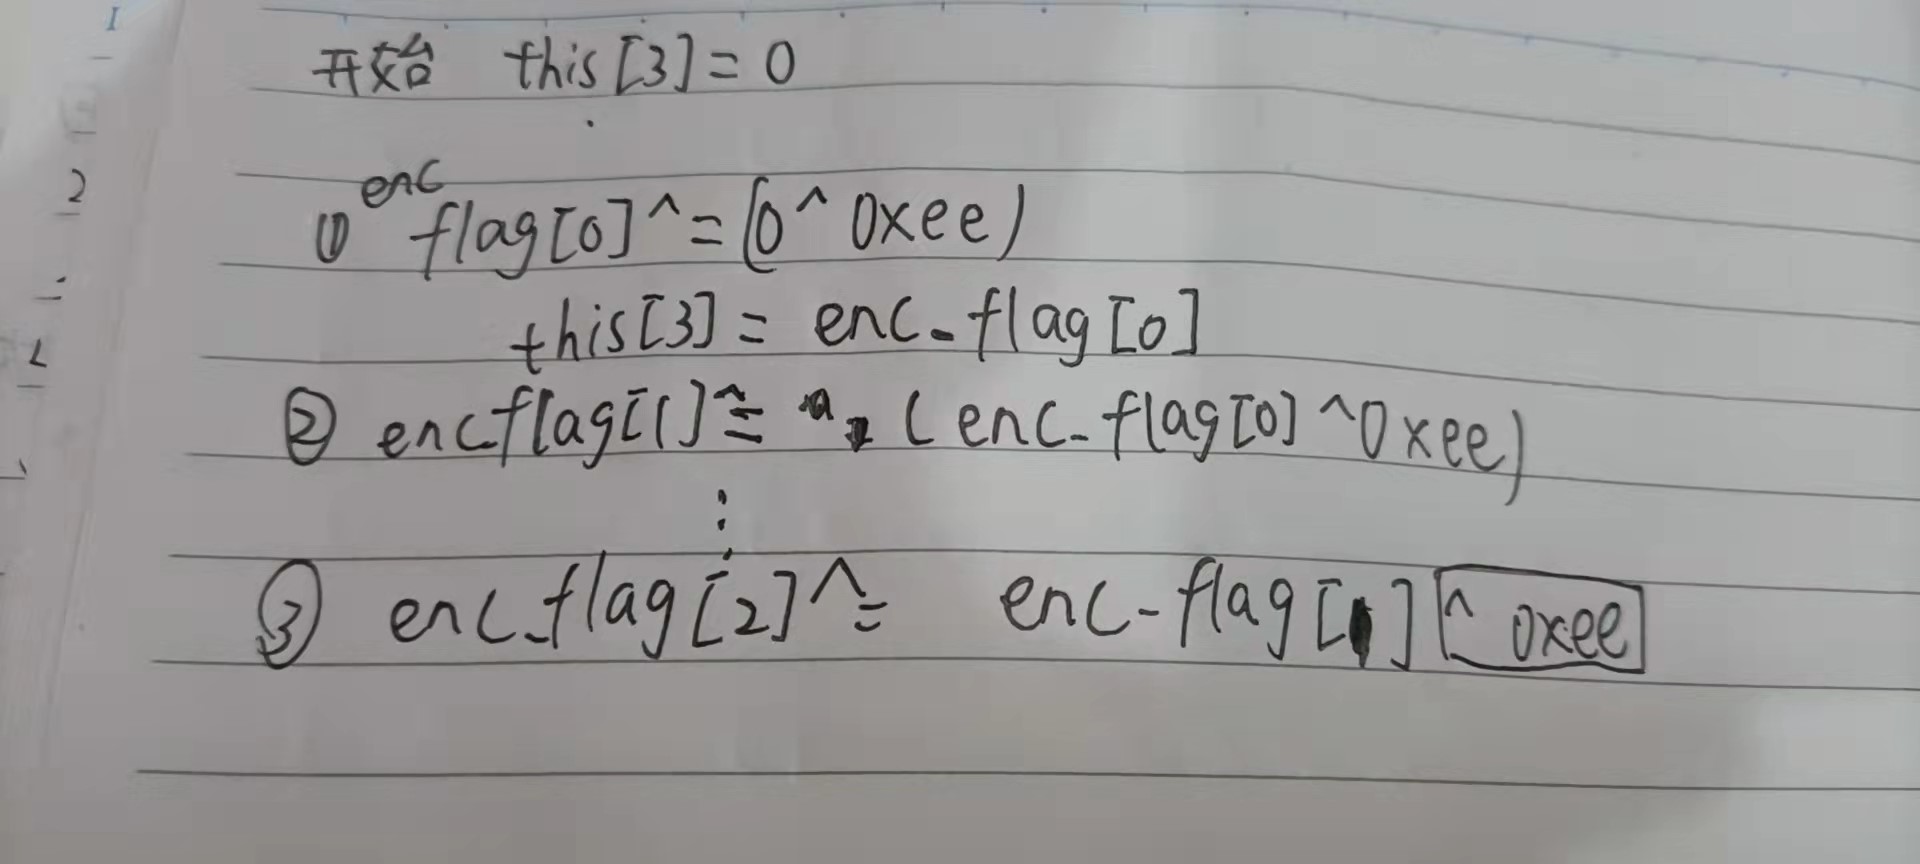 开始 this[3]=0
enc
① flag[0]^=(0^0xee)
this[3]=enc_flag[0]
② enc_flag[1]^=(enc_flag[0]^0xee)
⋮
③ enc_flag[2]^= enc_flag[1]^0xee